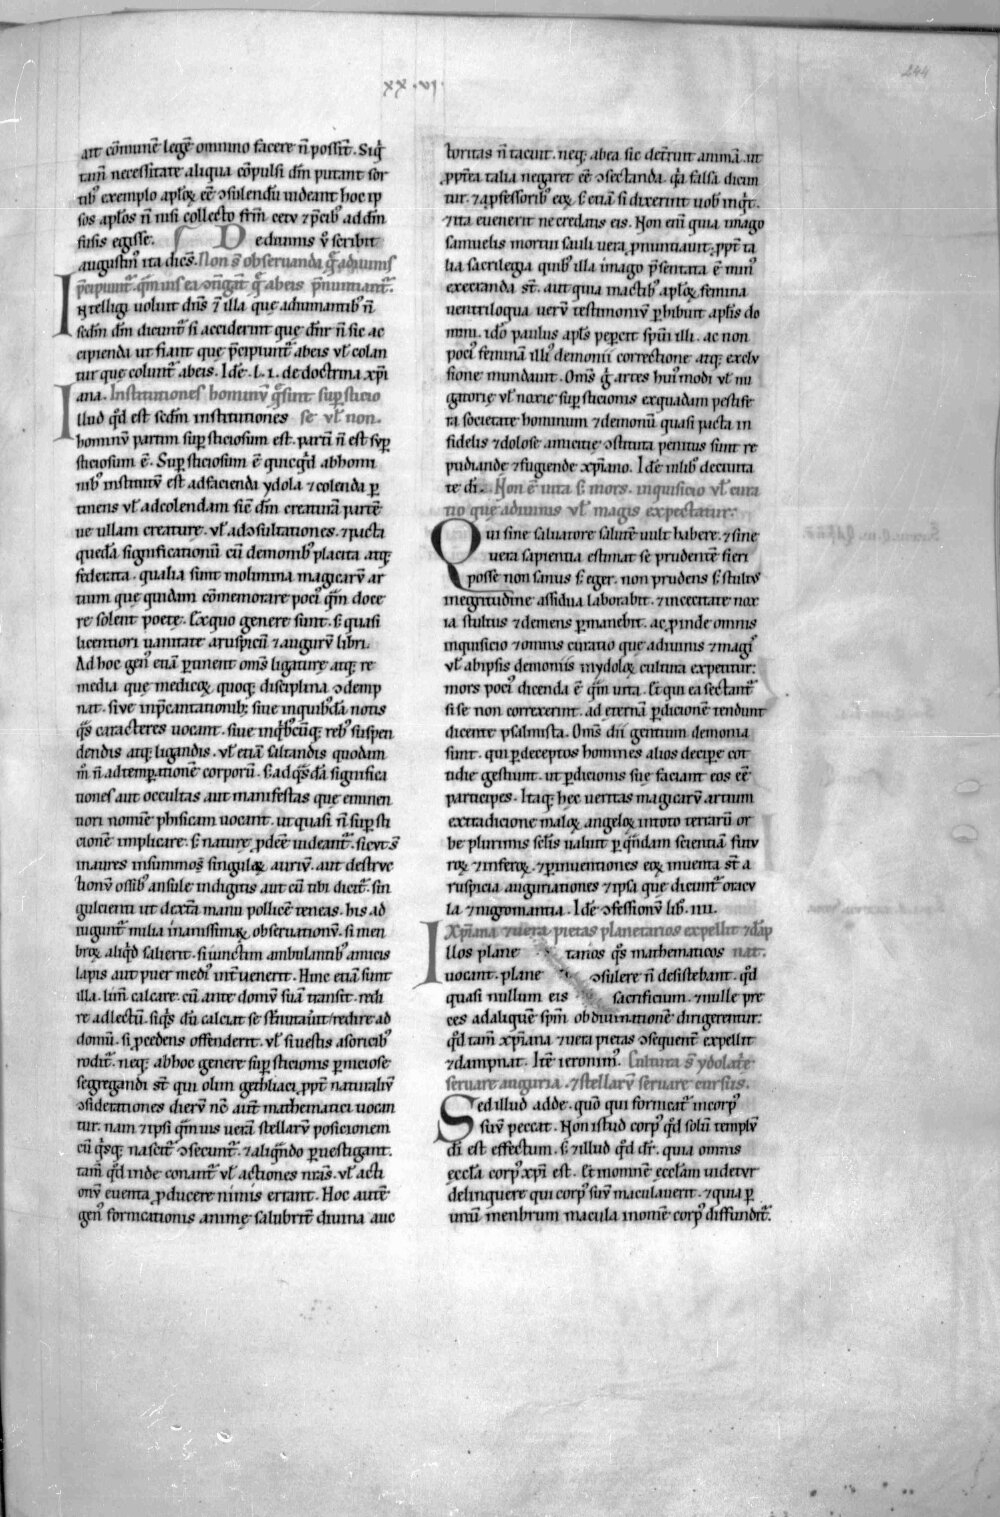 xx.vi.
244
ait cōmunē legē omnino facere n̄ possit̄. Siq̇
tam̄ necessitate aliqua cōpulsi dn̄m putant sor
tibꝰ exemplo aplōꝝ eē ↄsulendū uideant hoc ip
sos aplōs n̄ nisi collecto fr̄m cetu ⁊ p̄cibꝰ ad dm̄
fusis egisse. De diuinis ꝟ scribit
augustinꝰ ita dicēs. Non s̄t obseruanda q̄ a diuinis
p̄cipiunt᷑. qm̄uis ea ↄtingāt q̄ ab eis p̄nuntiant᷑.
Intelligi uoluit dn̄s ⁊ illa que a diuinantibꝰ n̄
sedm̄ dm̄ dicunt᷑ si acciderint que dn̄r n̄ sic ac
cipienda ut fiant que p̄cipiunt᷑ ab eis ul̄ colan
tur que colunt᷑ ab eis. Idē. l. i. de doctrina xp̄i
ana. Institutiones hominū q̄ sint suꝑsticio
Illud qd̄ est sedm̄ institutiones se ul̄ non.
hominū partim suꝑsticiosum est. partī n̄ est suꝑ
sticiosum ē. Suꝑsticiosum ē quicqd̄ ab homi
nibꝰ institutū est ad facienda ydola ⁊ colenda ꝑ
tinens ul̄ ad colendam sicē dm̄ creaturā partē
ue ullam creature. ul̄ ad ↄsultationes. ⁊ pacta
quedā significationū cū demonibꝰ placita atq;
federata. qualia sunt molimina magicarū ar
tium que quidam cōmemorare pociꝰ qm̄ doce
re solent poete. Ex quo genere sunt. s; quasi
licentiori uanitate aruspicū ⁊ augurū libri.
Ad hoc genꝰ etiā ꝑtinent om̄s ligature atq; re
media que medicoꝝ quoq; disciplina ↄdemp
nat. siue in p̄cantationibꝫ siue in quibꝰdā notis
qs̄ caracteres uocant. siue in qbꝰcūq; rebꝰ suspen
dendis atq; ligandis. ul̄ etiā saltandis quodam
m̄ n̄ ad temꝑationē corporū. s; ad qs̄dā significa
tiones aut occultas aut manifestas que miuen
tiori nomine phisicam uocant. ut quasi n̄ suꝑsti
cionē implicare. s; nature ꝓdeē uideant᷑. sicut s̄t
inaures in summos singulaꝝ auriū. aut destruc
tionū ossibꝰ ansule in digitis aut cū tibi dicit᷑. sin
gulcienti ut dext̄a manu pollicē teneas. his ad
iungunt᷑ milia inanissimaꝝ obseruationū. si men
broꝝ aliqd̄ salierit. si iunctim ambulantibꝰ amicis
lapis aut puer mediꝰ int̄uenerit. Hinc etiā sunt
illa. limē calcare. cū ante domū suā transit. redi
re ad lectū. siq̇s dū calciat se st̄nutauit redire ad
domū. si ꝓcedens offenderit. ul̄ si uestis a soricibꝰ
rodit᷑. neq; ab hoc genere suꝑsticionis ꝑniciose
segregandi s̄t qui olim gethliaci ꝓpt̄ naturaliū
ↄsiderationes dierū nc̄ aut̄ mathematici uocan
tur. nam ⁊ ipsi qm̄uis ueră stellarū posicionem
cū q̇sq; nascit᷑ ↄsecunt᷑. ⁊ aliqn̄do ꝑuestigant.
tam̄ qd̄ inde conant᷑ ul̄ actiones nr̄as. ul̄ acti
onū euenta ꝓducere nimis errant. Hoc autē
genꝰ fornicationis anime salubrit̄ diuina auc
toritas n̄ tacuit. neq; ab ea sic det̄ruit animā. ut
ꝓpt̄ea talia negaret eē ↄsectanda. q̇a falsa dicun
tur. ⁊ a ꝓfessoribꝰ eoꝝ s; etiā si dixerint uobꝰ inqt̄.
⁊ ita euenerit ne credatis eis. Non enī quia imago
samuelis mortui sauli uera ꝓnuntiauit. ꝓpt̄ ta
lia sacrilegia quibꝰ illa imago p̄sentata ē minꝰ
execranda st̄. aut quia in actibꝰ aplōꝝ femina
uentriloqua uerū testimoniū ꝑhibuit aplīs do
mini. idō paulus aplūs peꝑcit spūi illi. ac non
pociꝰ feminā illiꝰ demonii correctione atq; exclu
sione mundauit. Om̄s g̊ artes huiꝰmodi ul̄ nu
gatorie ul̄ noxie suꝑsticionis ex quadam pestife
ra societate hominum ⁊ demonū quasi pacta in
fidelis ⁊ dolose amicitie ↄstituta penitus sunt re
pudiande ⁊ fugiende xp̄iano. Idē in libꝰ de ciuita
te di. Non ē uita s; mors. inquisicio ul̄ cura
tio que a diuinis ul̄ magis expectatur.
Qui sine saluatore salutē uult habere. ⁊ sine
uera sapientia estimat se prudentē fieri
posse non sanus s; eger. non prudens s; stultus
in egritudine assidua laborabit. ⁊ in cecitate nox
ia stultus ⁊ demens ꝑmanebit. ac ꝓinde omnis
inquisicio ⁊ omnis curatio que a diuinis ⁊ magiꝰ
ul̄ ab ipsis demoniis in ydoloꝝ cultura expetitur:
mors pociꝰ dicenda ē qm̄ uita. Et qui ea sectant᷑
si se non correxerint. ad eternā ꝑdicionē tendunt
dicente psalmista. Om̄s dii gentium demonia
sunt. qui ꝑ deceptos homines alios deciꝑe cot
tidie gestiunt. ut ꝑdicionis sue faciant eos eē
participes. Itaq; hec ueritas magicarū artium
ex traditione maloꝝ angeloꝝ in toto terrarū or
be plurimis sclīs ualuit ꝑ qn̄dam scientiā futu
roꝝ ⁊ inferoꝝ. ⁊ ꝑ inuentiones eoꝝ inuenta st̄ a
ruspicia auguriationes ⁊ ipsa que dicunt᷑ oracu
la ⁊ nigromantia. Idē ↄfessionū lib. iiii.
Xp̄iana ⁊ uera pietas planetarios expellit ⁊ dāp
Illos plane tarios qs̄ mathematicos nat.
uocant. plane ↄsulere n̄ desistebant. qd̄
quasi nullum eis sacrificium. ⁊ nulle pre
ces ad aliquē spm̄ ob diuinationē dirigerentur:
qd̄ tam̄ xp̄iana ⁊ uera pietas ↄsequent̄ expellit
⁊ dampnat. Itē ieronimꝰ. Cultura s̄t ydolat̄e
seruare auguria. ⁊ stellarū seruare cursus.
Sed illud adde. quō qui fornicat᷑ in corpꝰ
suū peccat. Non istud corpꝰ qd̄ solū templū
di est effectum. s; ⁊ illud qd̄ dr̄. quia omnis
eccl̄a corpꝰ xp̄i est. Et in omnē eccl̄am uidetur
delinquere qui corpꝰ suū maculauerit. ⁊ quia ꝑ
unū menbrum macula in omē corpꝰ diffundit᷑.